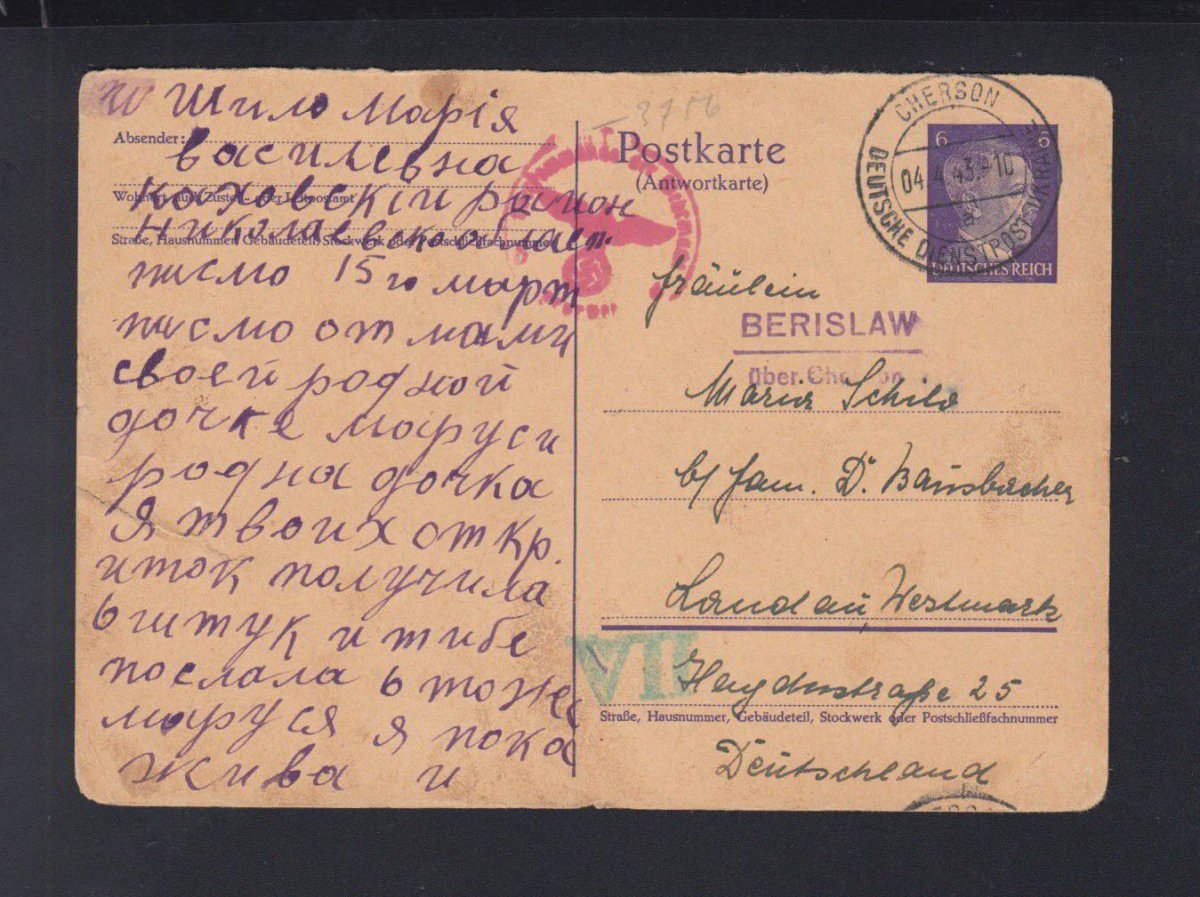 Шило Марія
Absender:
василевна
каховскій район
Wohnort, auch Zustell- oder Leitpostamt
Николаевскои област.
Straße, Hausnummer, Gebäudeteil, Stockwerk oder Postschließfachnummer
писмо 15 го март
писмо от мами
своей родной
дочке маруси
родна дочка
я твоих откр.
иток получила
6 штук и тибе
послала 6 тоже
маруся я пока
жива и
3756
Postkarte
(Antwortkarte)
CHERSON
04.4.43.-10
DEUTSCHE DIENSTPOST UKRAINE
6 6
DEUTSCHES REICH
Fräulein
BERISLAW
über Cherson
Maria Schilo
b/ Fam. D. Bansbacher
Landau, Westmark
VII
Haydnstraße 25
Straße, Hausnummer, Gebäudeteil, Stockwerk oder Postschließfachnummer
Deutschland